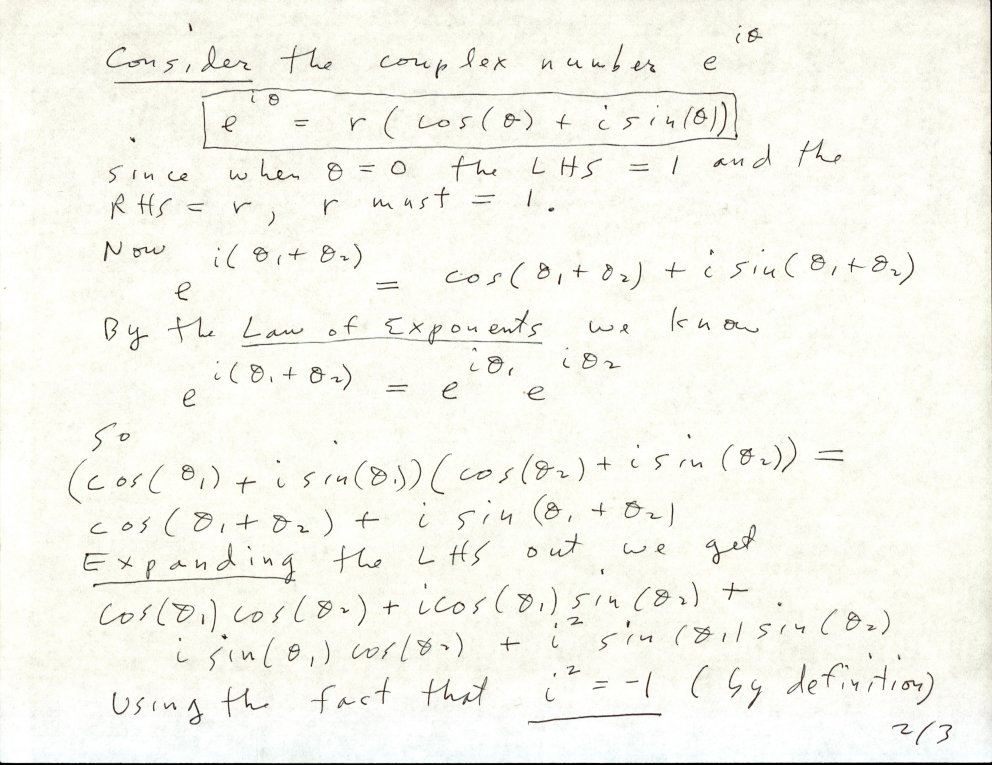 Consider the complex number e^{iθ}
e^{iθ} = r ( cos(θ) + i sin(θ))
since when θ = 0 the LHS = 1 and the
RHS = r, r must = 1.
Now e^{i(θ₁+θ₂)} = cos(θ₁+θ₂) + i sin(θ₁+θ₂)
By the Law of Exponents we know
e^{i(θ₁+θ₂)} = e^{iθ₁} e^{iθ₂}
so
(cos(θ₁) + i sin(θ₁))(cos(θ₂) + i sin(θ₂)) =
cos(θ₁+θ₂) + i sin(θ₁+θ₂)
Expanding the LHS out we get
cos(θ₁) cos(θ₂) + i cos(θ₁) sin(θ₂) +
i sin(θ₁) cos(θ₂) + i² sin(θ₁) sin(θ₂)
Using the fact that i² = -1 (by definition)
2/3